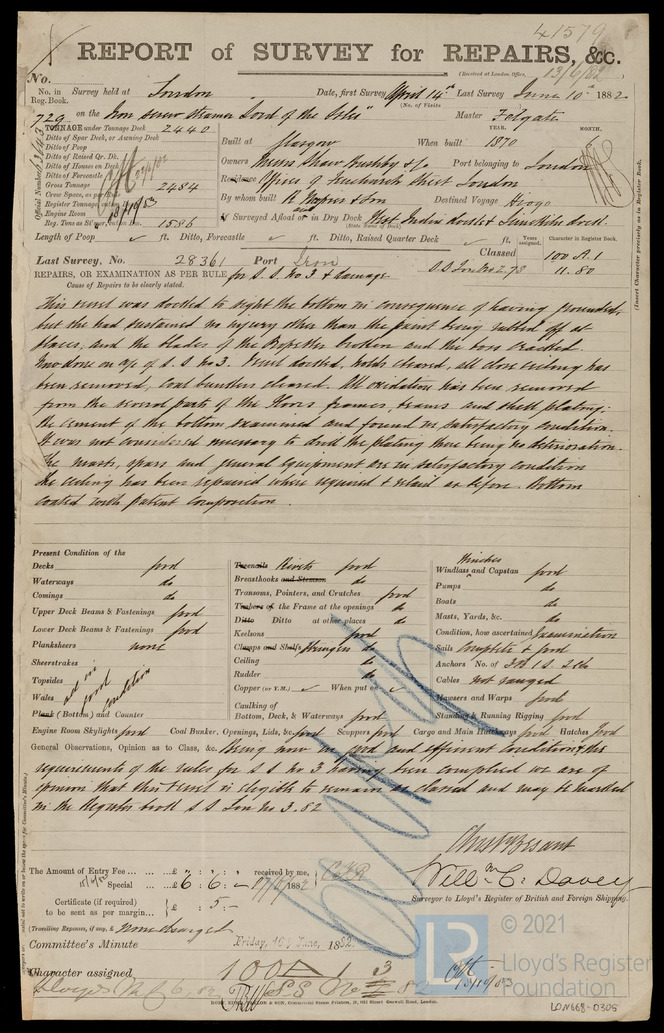 41579
REPORT of SURVEY for REPAIRS, &c.
(Received at London Office, 13/6/82
No.
No. in Reg. Book. Survey held at London Date, first Survey April 14th Last Survey June 10th 1882
(No. of Visits
729 on the Iron Screw Steamer "Lord of the Isles" Master Felgate
TONNAGE under Tonnage Deck 2440
Ditto of Spar Deck, or Awning Deck
Ditto of Poop
Ditto of Raised Qr. Dk.
Ditto of Houses on Deck
Ditto of Forecastle
Gross Tonnage 2484
Engine Room
Reg. Tons as 1586
YEAR. MONTH.
Built at Glasgow When built 1870
Owners Messrs Shaw Bushby & Co Port belonging to London
Residence Offices Fenchurch Street London
By whom built R Napier & Son Destined Voyage Hiogo
If Surveyed Afloat or in Dry Dock West India docks & Limekiln dock.
(State Name of Dock)
Length of Poop ft. Ditto, Forecastle ft. Ditto, Raised Quarter Deck ft. Years assigned. Character in Register Book.
Last Survey, No. 28361 Port Iron Classed 100 A.1
REPAIRS, OR EXAMINATION AS PER RULE for S.S. No 3 & damage. S.S Lon No 2.78 11.80
Cause of Repairs to be clearly stated.
This vessel was docked to sight the bottom in consequence of having grounded,
but she had sustained no injury other than the paint being rubbed off at
places, and the blades of the Propeller broken and the boss cracked.
Now done on a/c of S.S No 3. Vessel docked, holds cleared, all close ceiling has
been removed, coal bunkers cleared. All oxidation has been removed
from the several parts of the floors, frames, beams and shell plating;
the cement of the bottom examined and found in satisfactory condition.
It was not considered necessary to drill the plating there being no deterioration.
The masts, spars and general equipment are in satisfactory condition
the ceiling has been repaired where required & relaid as before. Bottom
coated with patent composition.
Present Condition of the
Decks good
Waterways do
Comings do
Upper Deck Beams & Fastenings good
Lower Deck Beams & Fastenings good
Planksheers none
Sheerstrakes
Topsides
Wales
Plank (Bottom) and Counter
all in good condition
Treenails Rivets good
Breasthooks and Stemson do
Transoms, Pointers, and Crutches good
Timbers of the Frame at the openings do
Ditto Ditto at other places do
Keelsons good
Clamps and Shelfs Stringers do
Ceiling do
Rudder do
Copper (or Y.M.) When put on
Caulking of
Bottom, Deck, & Waterways good
Winches
Windlass and Capstan good
Pumps do
Boats do
Masts, Yards, &c. do
Condition, how ascertained Examination
Sails Complete & good
Anchors No. of 3 B. 1 S. 2 K
Cables not ranged
Hawsers and Warps good
Standing & Running Rigging good
Engine Room Skylights good Coal Bunker, Openings, Lids, &c. good Scuppers good Cargo and Main Hatchways good Hatches good
General Observations, Opinion as to Class, &c. Being now in good and efficient condition & the
requirements of the rules for S S No 3 having been complied we are of
opinion that this vessel is eligible to remain as classed and may be marked
in the Register book S S Lon No 3.82
The Amount of Entry Fee £ : : received by me,
Special £ 6 : 6 : - 1882
Certificate (if required) to be sent as per margin £ : 5 : -
(Travelling Expenses, if any, £ none charged
Will m C. Davey
Surveyor to Lloyd's Register of British and Foreign Shipping.
Committee's Minute Friday, 16 June, 1882
Character assigned 100 A 1
S S No 3 82
© 2021
Lloyd's Register
Foundation
LON668-0305
(Insert Character precisely as in Register Book.